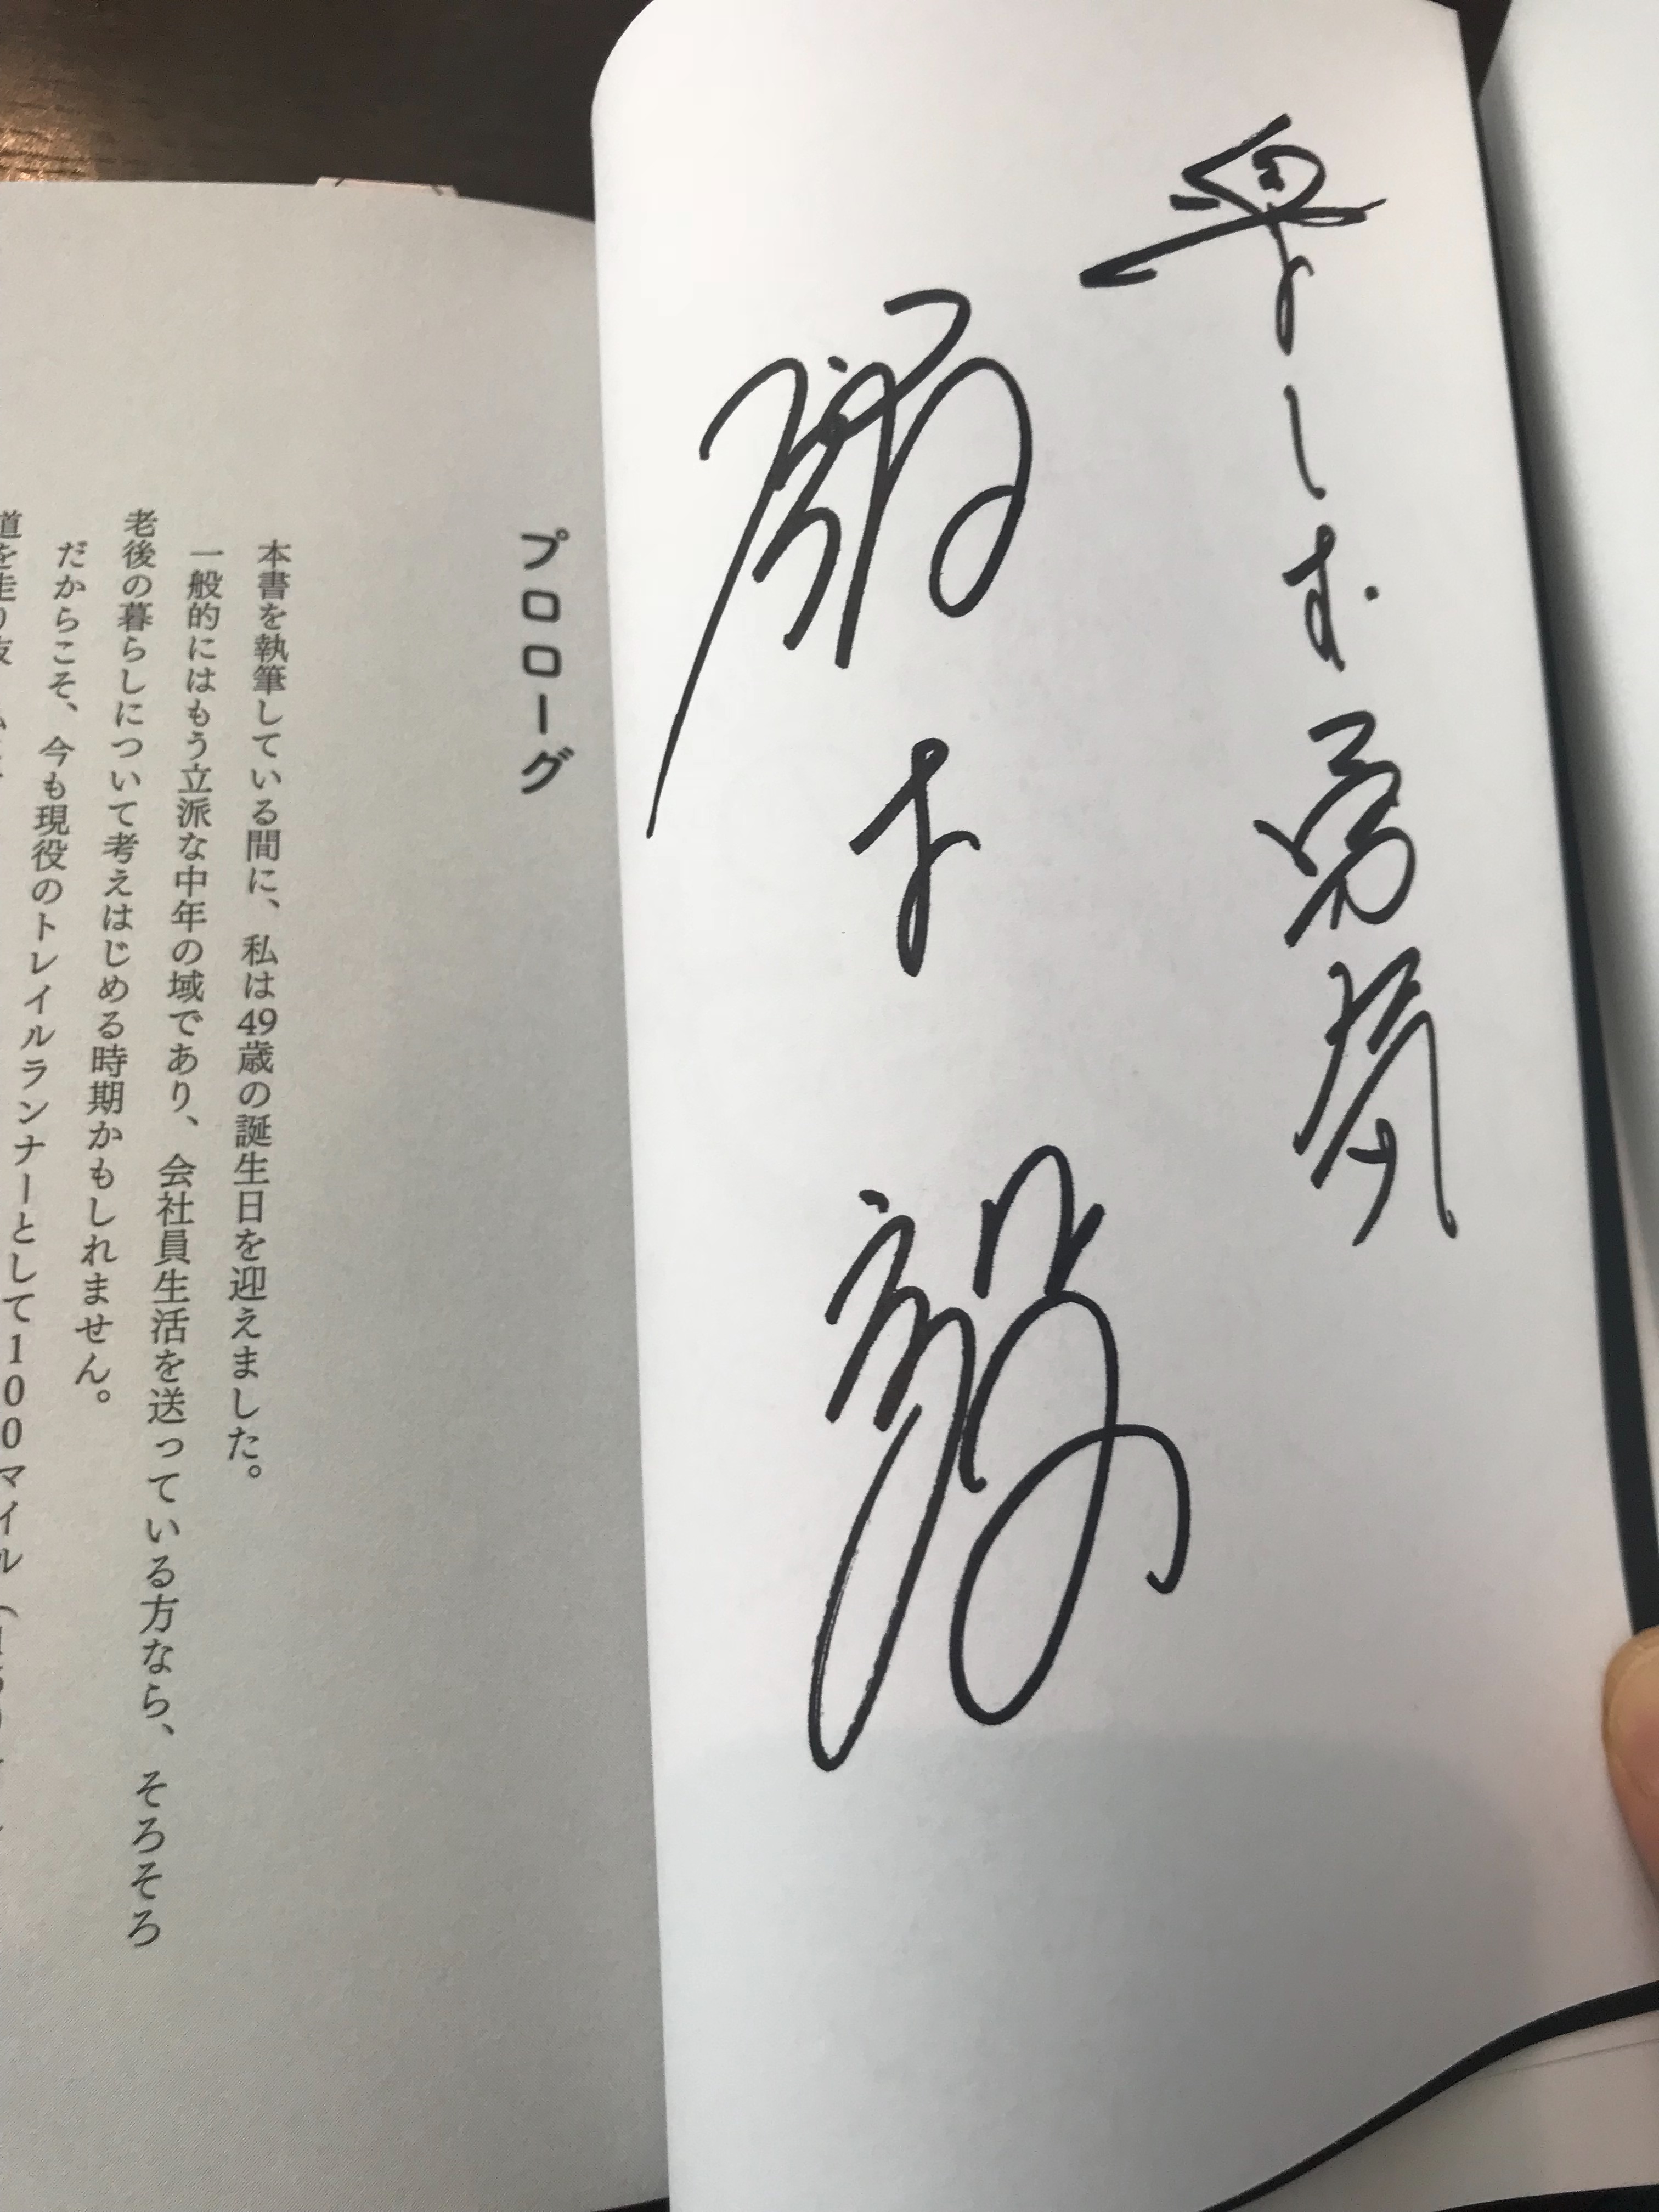 楽しむ勇気
鏑木 毅
プロローグ
本書を執筆している間に、私は49歳の誕生日を迎えました。
一般的にはもう立派な中年の域であり、会社員生活を送っている方なら、そろそろ
老後の暮らしについて考えはじめる時期かもしれません。
だからこそ、今も現役のトレイルランナーとして100マイル
道を走り